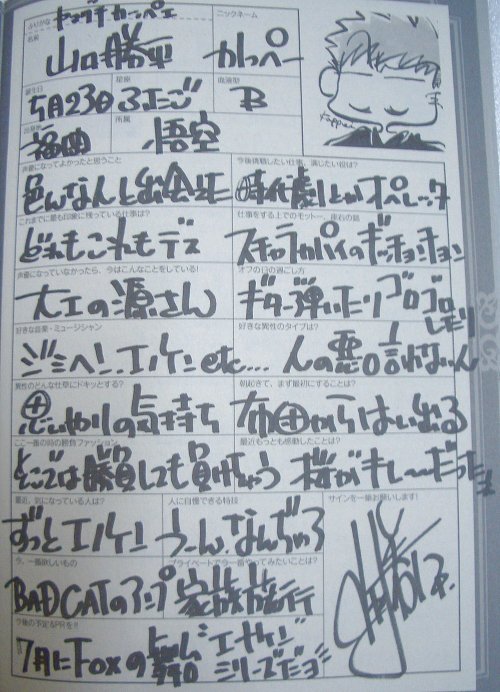 ふりがな ヤマグチ カッペイ
ニックネーム
名前
山口勝平
かっぺー
誕生日
星座
血液型
5月23日
ふたご
B
出身地
所属
福岡
悟空
声優になってよかったと思うこと
今後挑戦したい仕事、演じたい役は？
色んな人と出会えた
時代劇とかオペレッタ
これまでに最も印象に残っている仕事は？
仕事をする上でのモットー、座右の銘
どれもこれもデス
スチャラカパイのギッチョンチョン
声優になっていなかったら、今はこんなことをしている！
オフの日の過ごし方
大工の源さん
ギター弾いたりゴロゴロしたり
好きな音楽・ミュージシャン
好きな異性のタイプは？
ジミヘン、エノケンetc...
人の悪口言わない人
異性のどんな仕草にドキッとする？
朝起きて、まず最初にすることは？
思いやりの気持ち
布団からはい出る
ここ一番の時の勝負ファッション
最近もっとも感動したことは？
どこでは勝負しても負けちゃう
桜がキレ〜だった
最近、気になっている人は？
人に自慢できる特技
サインを一筆お願いします！
ずっとエノケン
うーん、なんだろ
今、一番欲しいもの
プライベートで今一番やってみたいことは？
BADCATのアンプ
家族旅行
今後の予定などPRを!!
7月にFoxの舞台
エノケンシリーズだヨ
Kappei